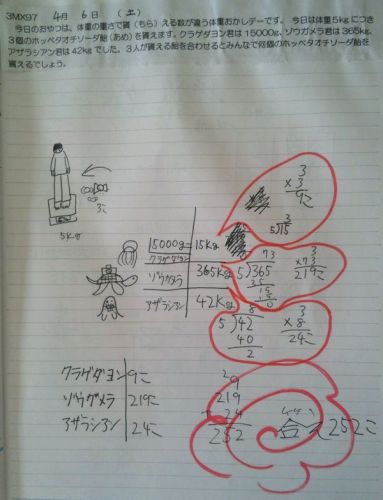 3MX97 4月 6日 (土)
今日のおやつは、体重の重さで貰(もら)える数が違う体重おかしデーです。今日は体重5kgにつき
3個のホッペタオチソーダ飴(あめ)を貰えます。クラゲダヨン君は15000g、ゾウガメラ君は365kg、
アザラシアン君は42kgでした。3人が貰える飴を合わせるとみんなで何個のホッペタオチソーダ飴を
貰えるでしょう。
3こ
5kg
15000g=15kg
クラゲダヨン
365kg
ゾウガメラ
42kg
アザラシアン
3
×3
9こ
3
5)15
73
5)365
35
15
15
0
3
×73
219こ
8
5)42
40
2
3
×8
24こ
クラゲダヨン 9こ
ゾウガメラ 219こ
アザラシアン 24こ
9
219
+ 24
252
合えて252こ